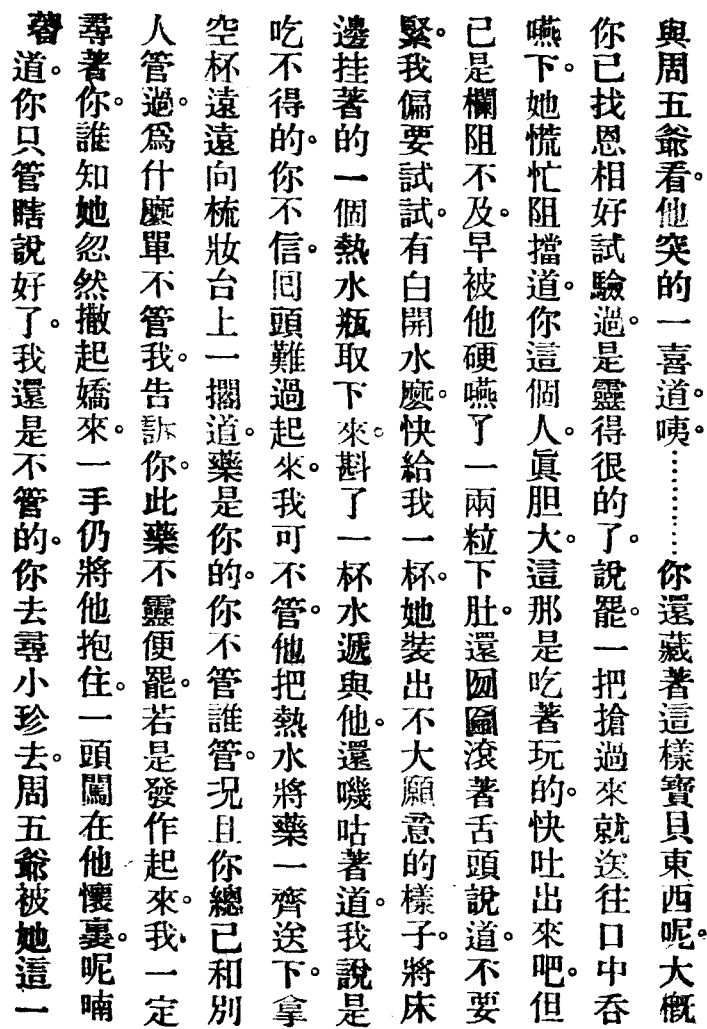 與周五爺看。他突的一喜道。咦…………你還藏著這樣寶貝東西呢。大概
你已找恩相好試驗過。是靈得很的了。說罷。一把搶過來就送往口中吞
嚥下。她慌忙阻擋道。你這個人。眞胆大。這那是吃著玩的。快吐出來吧。但
已是欄阻不及。早被他硬嚥了一兩粒下肚。還囫圇滾著舌頭說道。不要
緊。我偏要試試。有白開水麽。快給我一杯。她裝出不大願意的樣子。將床
邊挂著的一個熱水瓶取下來。斟了一杯水遞與他。還嘰咕著道。我說是
吃不得的。你不信。囘頭難過起來。我可不管。他把熱水將藥一齊送下。拿
空杯遠遠向梳妝台上一擱道。藥是你的。你不管誰管。况且你總已和別
人管過。爲什麽單不管我。告訴你。此藥不靈便罷。若是發作起來。我一定
尋著你。誰知她忽然撒起嬌來。一手仍將他抱住。一頭闖在他懷裏。呢喃
著道。你只管瞎說好了。我還是不管的。你去尋小珍去。周五爺被她這一